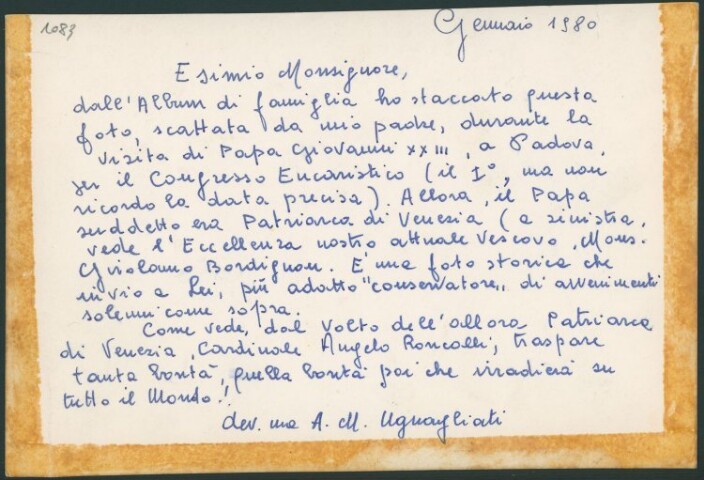 1083
Gennaio 1980
Esimio Monsignore,
dall'Album di famiglia ho staccato questa
foto, scattata da mio padre, durante la
visita di Papa Giovanni XXIII, a Padova,
per il Congresso Eucaristico (il 1°, ma non
ricordo la data precisa). Allora, il Papa
suddetto era Patriarca di Venezia (a sinistra,
vede l'Eccellenza nostro attuale Vescovo, Mons.
Girolamo Bordignon. E' una foto storica che
invio a Lei, più adatto "conservatore" di avvenimenti
solenni come sopra.
Come vede, dal Volto dell'allora Patriarca
di Venezia, Cardinale Angelo Roncalli, traspare
tanta bontà, quella bontà poi che irradierà su
tutto il Mondo!
dev.ma A. M. Ugnagliati